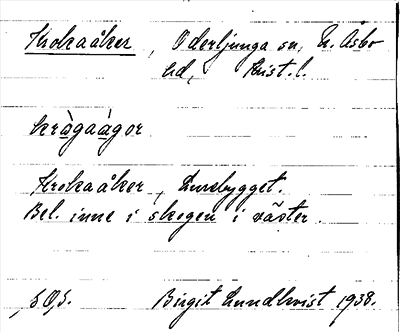 Krokaåker, Oderljunga sn, N. Åsbo
hd, Krist. l.
kràgaágor
Krokaåker, Lursbygget.
Bel. inne i skogen i väster.
Birgit Lundkvist 1938.